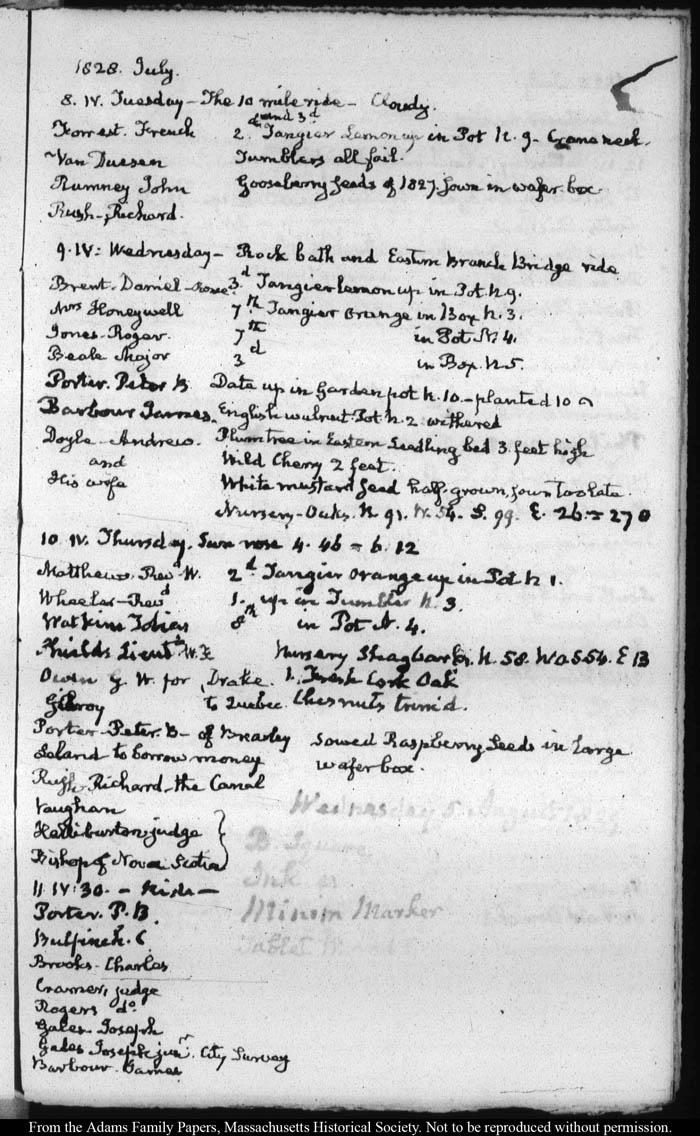 1828. July.
8. IV. Tuesday – The 10 mile ride – Cloudy.
Forrest. French 2.d and 3d Tangier Lemon up in Pot N. 9. Crane neck.
Van Deusen Tumblers all fail.
Rumney John Gooseberry seeds of 1827. sown in wafer box
Rush, Richard.
9. IV: Wednesday – Rock bath and Eastern Branch Bridge ride
Brent. Daniel 3.d Tangier Lemon up in Pot. N 9.
Mrs Honeywell 7.th Tangier Orange in Box N. 3.
Jones. Roger. 7th in Pot. N. 4.
Beale Major 3d in Box. N 5.
Porter. Peter B Date up in Garden pot N. 10. – planted 10
Barbour James. English walnut. Pot. N. 2. withered
Doyle. Andrew. Plum tree in Eastern Seedling bed 3. feet high
and Wild Cherry 2 feet.
His wife White mustard seed half-grown, sown too late.
Nursery – Oaks. N. 91. W. 54. S. 99. E. 26. = 270
10. IV. Thursday. Sun rose 4. 46 = 6. 12
Matthews. Revd W. 2d. Tangier Orange up in Pot N 1.
Wheeler – Revd 1. up in Tumbler N. 3.
Watkins Tobias 8th in Pot N. 4.
Shields Lieutt W. F. Nursery Shagbarks. N. 58. W 0 S 54. E 13
Owen G. W. for Drake. 1. Fresh Cork Oak
Gilroy to Quebec. Chesnuts trim'd.
Porter – Peter. B – of Brearley Sowed Raspberry Seeds in large
Leland to borrow money wafer box.
Rush, Richard – the Canal
Vaughan
Halliburton judge
Bishop of Nova Scotia
11. IV: 30. – Ride –
Porter. P. B.
Bulfinch. C
Brooks. Charles
Cramer, judge
Rogers do
Gales Joseph
Gales Joseph junr. City Survey
Barbour. James
Wednesday 5. August
B. Square
Ink
Minim Marker
Tablet
From the Adams Family Papers, Massachusetts Historical Society. Not to be reproduced without permission.